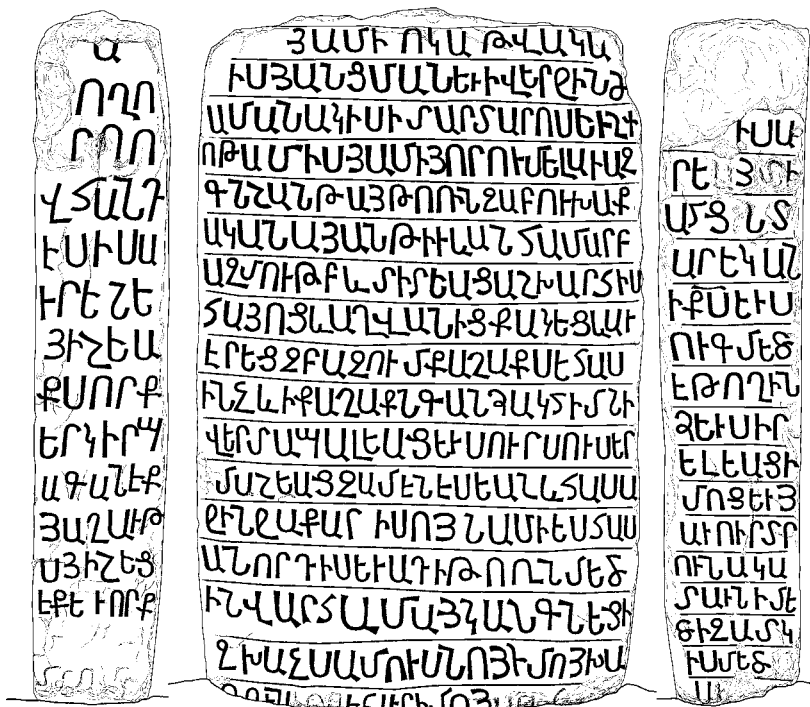 Ա
ՈՂՈ
ՐՈՈ
ՎՀԱՆԴ
ԷՍԻՍԱ
ՒՐԷՇԵ
ՅԻՇԵԱ
ՔՍՈՐՔ
ԵՐԿԻՐՊ
ԱԳԱՆԷՔ
ՅԱՂԱՒԹ
ՍՅԻՇԵՑ
ԷՔԵՒՈՐՔ
ՅԱՄԻ ՈԿԱ ԹՎԱԿԱ
ԻՍՅԱՆՑՄԱՆԵՒՎԵՐՋԻՆԺ
ԱՄԱՆԱԿԻՍԻՄԱՐՏԱՐՈՍԵՒՂՒ
ՈԹԱՄԻՍՅԱՄԻՅՈՐՈՒՄԵԼԱՒԱԶ
ԳՆՇԱՆԹԱՅԹՈՌՆԶԱԲՈՒԽԱՔ
ԱԿԱՆԱՅԱՆԹԻՒԼԱՆՀԱՄԱՐԲ
ԱԶՄՈՒԹԲԵՒՄԻՐԵԱՑԱՇԽԱՐՀԻՍ
ՀԱՅՈՑԵՒԱՂՎԱՆԻՑՔԱԿԵՑԵՒԱՒ
ԷՐԵՑԶԲԱԶՈՒՄՔԱՂԱՔՍԷՀԱՍ
ԻՆՉԵՒԻՔԱՂԱՔՆԳԱՆՁԱԿՏԻՄՆԻ
ՎԵՐՄԱՊԱԼԵԱՑԵՒՍՈՒՐՍՈՒՍԵՐ
ՄԱՇԵԱՑԶԱՄԷՆԷՍԵԱՆԵՒՀԱՍԱ
ՋԻՆՋԱՔԱՐ ԻՍՈՅՆԱՄԻԵՍՏԱՍ
ԱՆՈՐԴԻՍԵՒԱԴԻԹՈՂՆՄԵԾ
ԻՆՎԱՐՀԱՄԱՅԿԱՆԳՆԵՑԻ
ԶԽԱՉՍԱՄՈՒՍՆՈՅԻՄՈՅԽԱ
ԻՍԱ
ՐԵ ՅՄԻ
ԱՄՑ ՆՏ
ԱՐԵԿԱՆ
ԻՔՍԵՒՍ
ՈՒԳՄԵԾ
ԷԹՈՂԻՆ
ԶԵՒՍԻՐ
ԵԼԵԱՑԻ
ՄՈՑԵՒՅ
ԱՒՈՒՐՍՐ
ՈՒՆԱԿԱ
ՄԱՒՆԻՄԷ
ԾԻԶԱՄԿ
ԻՍՄԵԾ